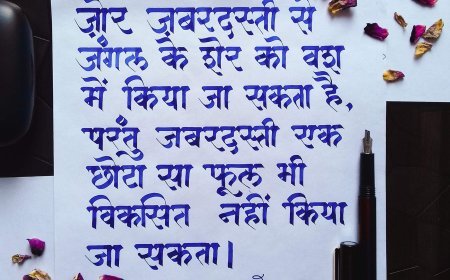 ज़ोर ज़बरदस्ती से
जंगल के शेर को वश
में किया जा सकता है,
परंतु जबरदस्ती एक
छोटा सा फूल भी
विकसित नहीं किया
जा सकता।